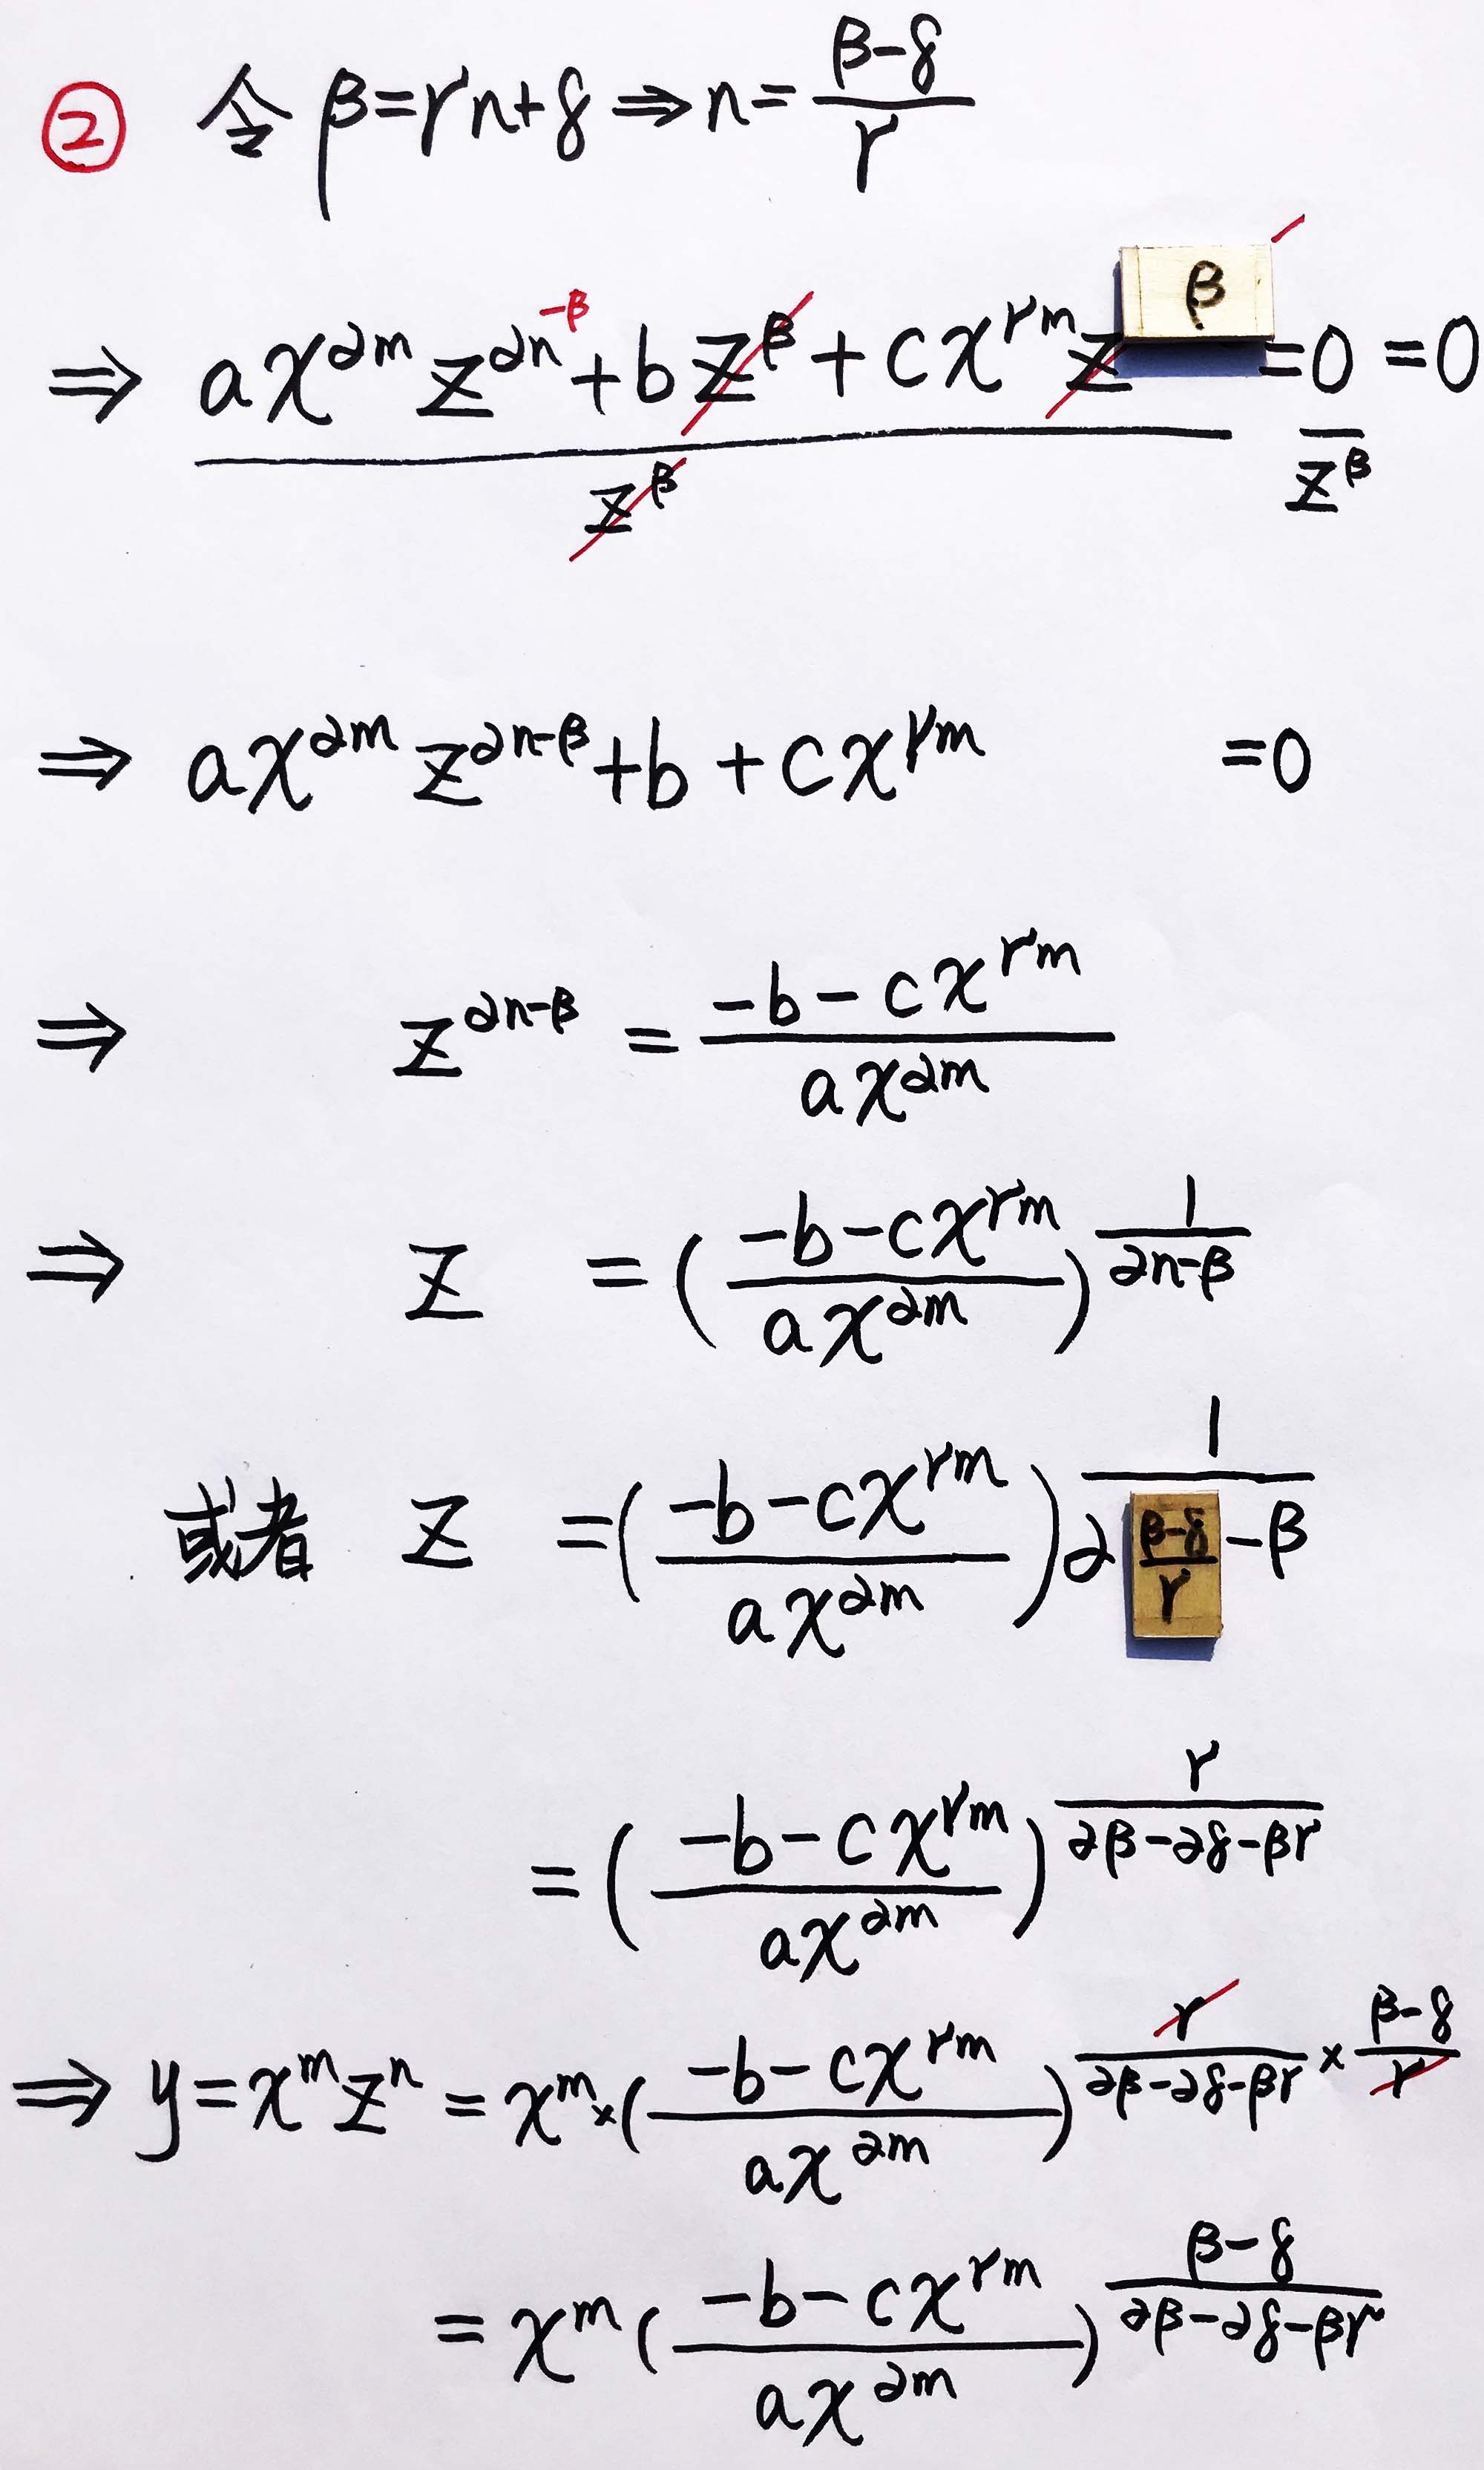 ② 令 β=γn+δ ⇒ n=(β-δ)/γ
⇒ (ax^{∂m} z^{∂n-β} + bz^β + cx^{γm} z^β)/z^β =0/z^β =0
⇒ ax^{∂m} z^{∂n-β} +b +cx^{γm} =0
⇒ z^{∂n-β} = (-b-cx^{γm})/(ax^{∂m})
⇒ z = ((-b-cx^{γm})/(ax^{∂m}))^{1/(∂n-β)}
或者 z = ((-b-cx^{γm})/(ax^{∂m}))^{1/(∂(β-δ)/γ-β)}
= ((-b-cx^{γm})/(ax^{∂m}))^{γ/(∂β-∂δ-βγ)}
⇒ y=x^m z^n = x^m×((-b-cx^{γm})/(ax^{∂m}))^{γ/(∂β-∂δ-βγ)×(β-δ)/γ}
= x^m((-b-cx^{γm})/(ax^{∂m}))^{(β-δ)/(∂β-∂δ-βγ)}